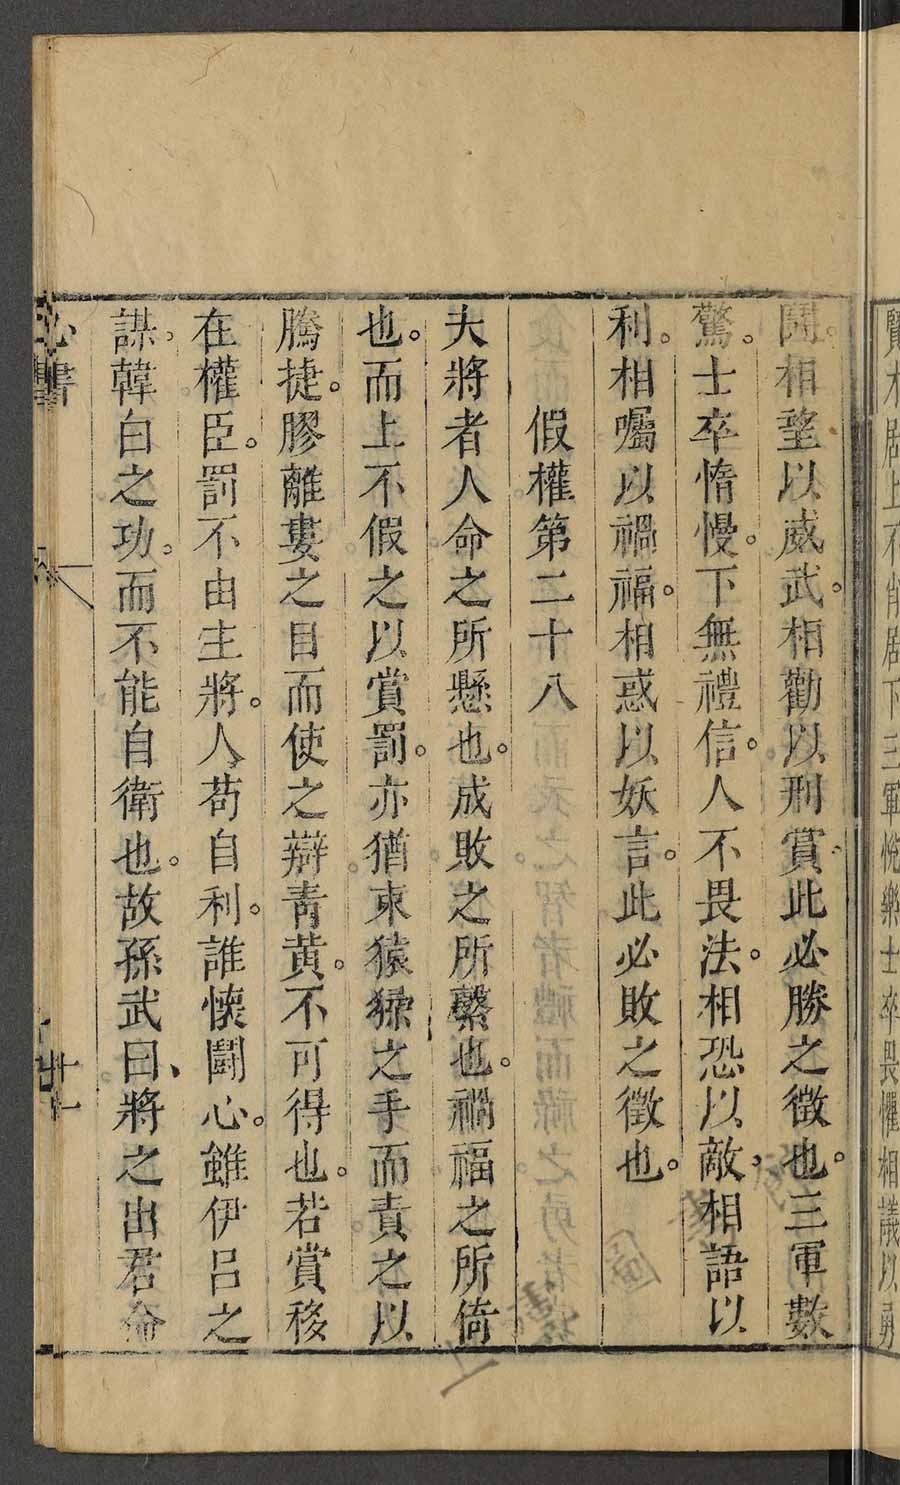 賢才居上不肖居下三軍悅樂士卒畏懼相議以勇
鬪。相望以威武。相勸以刑賞。此必勝之徵也。三軍數
驚。士卒惰慢。下無禮信。人不畏法。相恐以敵、相語以
利。相囑以禍福。相惑以妖言。此必敗之徵也。
假權第二十八
夫將者人命之所懸也。成敗之所繫也。禍福之所倚
也。而上不假之以賞罰。亦猶束猿猱之手而責之以
騰捷。膠離婁之目而使之辯青黃。不可得也。若賞移
在權臣。罰不由主將。人苟自利。誰懷鬪心。雖伊呂之
謀。韓白之功。而不能自衛也。故孫武曰、將之出君命
心書
廿一